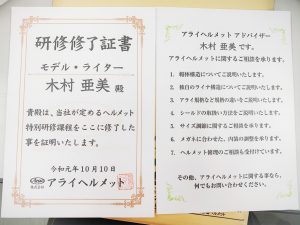 研修修了証書
モデル・ライター
木村 亜美 殿
貴殿は、当社が定めるヘルメット
特別研修課程をここに修了した
事を証明いたします。
令和元年10月10日
Arai
株式会社
アライヘルメット
アライヘルメット アドバイザー
木村 亜美です。
アライヘルメットに関するご相談を承ります。
1. 帽体構造についてご説明いたします。
2. 独自のライナ構造についてご説明いたします。
3. アライ規格など規格の違いをご説明いたします。
4. シールドの取扱い方法をご説明いたします。
5. サイズ調節に関するご相談を承ります。
6. メガネに合わせた、内装の調整を承ります。
7. ヘルメット修理のご相談も受付けています。
その他、アライヘルメットに関する事なら、
何でもお問い合わせください。